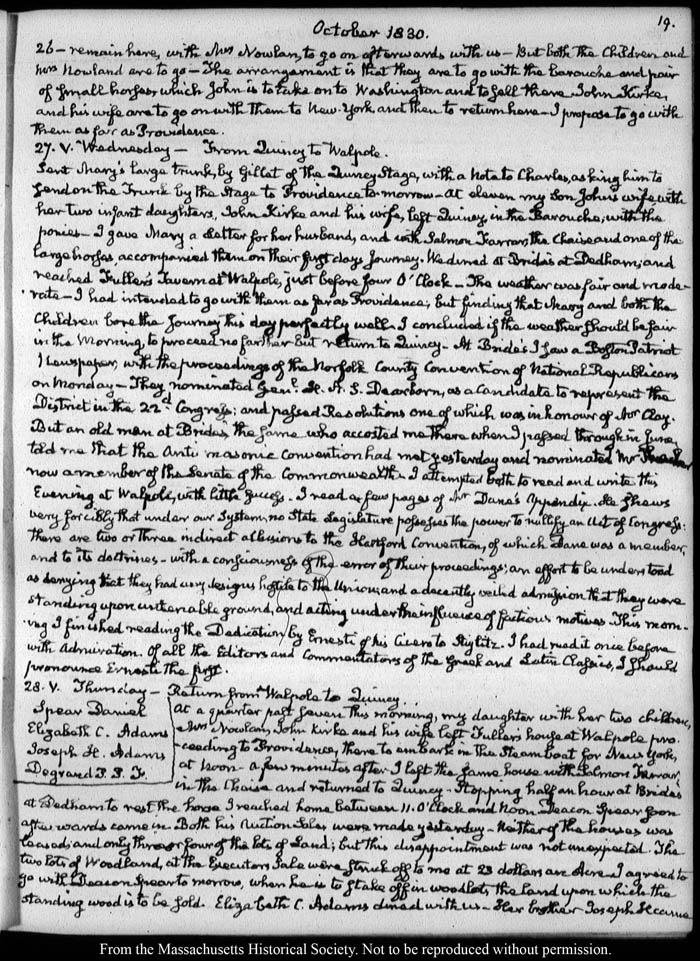 19.
October 1830.
26 — remain here, with Mrs Nowlan, to go on afterwards with us — But both the Children and
Mrs Nowland are to go — The arrangement is that they are to go with the Barouche and pair
of small horses, which John is to take on to Washington and to sell there. John Kirke,
and his wife are to go on with them to New-York and then to return here — I propose to go with
them as far as Providence.
27. V. Wednesday — From Quincy to Walpole.
Sent Mary's large trunk, by Gillet of the Quincy Stage, with a Note to Charles, asking him to
send on the Trunk by the Stage to Providence to-morrow — At eleven my Son John's wife, with
her two infant daughters, John Kirke and his wife, left Quincy, in the Barouche, with the
ponies — I gave Mary a Letter for her husband, and with Salmon Farrar, the Chaise and one of the
large horses, accompanied them on their first days Journey. We dined at Bride's at Dedham, and
reached Fuller's Tavern at Walpole, just before four O'Clock — The weather was fair and mode-
rate — I had intended to go with them as far as Providence; but finding that Mary and both the
Children bore the Journey this day perfectly well, I concluded if the weather should be fair
in the Morning, to proceed no farther but return to Quincy — At Bride's I saw a Boston Patriot
Newspaper, with the proceedings of the Norfolk County Convention of National Republicans
on Monday — They nominated Genl. H. A. S. Dearborn, as a Candidate to represent the
District in the 22d Congress; and passed Resolutions one of which was in honour of Mr Clay.
But an old man at Brides, the same who accosted me there when I passed through in June,
told me that the Anti masonic Convention had met yesterday and nominated Mr
now a member of the Senate of the Commonwealth. I attempted both to read and write this
Evening at Walpole, with little success. I read a few pages of Mr Dana's Appendix. He shews
very forcibly that under our System, no State Legislature possesses the power to nullify an Act of Congress:
there are two or three indirect allusions to the Hartford Convention, of which Dane was a member,
and to its doctrines — with a consciousness of the error of their proceedings; an effort to be understood
as denying that they had any designs hostile to the Union; and a decently veiled admission that they were
standing upon untenable ground, and acting under the influence of factious motives. This morn-
ing I finished reading the Dedication, by Ernesti of his Cicero to Stiglitz. I had read it once before
with Admiration. Of all the Editors and Commentators of the Greek and Latin Classics, I should
pronounce Ernesti the first.
28. V. Thursday — Return from Walpole to Quincy.
Spear Daniel
Elizabeth C. Adams
Joseph H. Adams
Degrand P. P. F.
At a quarter past seven this morning, my daughter with her two children,
Mrs Nowlan, John Kirke and his wife left Fuller's house at Walpole pro-
ceeding to Providence, there to embark in the Steam boat for New York,
at Noon — a few minutes after I left the same house with Salmon Farrar,
in the Chaise and returned to Quincy — Stopping half an hour at Brides
at Dedham to rest the horse I reached home between 11. O'Clock and Noon. Deacon Spear soon
afterwards came in. Both his Auction Sales were made yesterday — Neither of the houses was
leased, and only three or four of the lots of Land; but this disappointment was not unexpected. The
two lots of Woodland, at the Executors Sale were struck off to me at 23 dollars an Acre — I agreed to
go with Deacon Spear to morrow, when he is to stake off in woodlots, the land upon which the
standing wood is to be sold. Elizabeth C. Adams dined with us — Her brother Joseph H came
From the Massachusetts Historical Society. Not to be reproduced without permission.